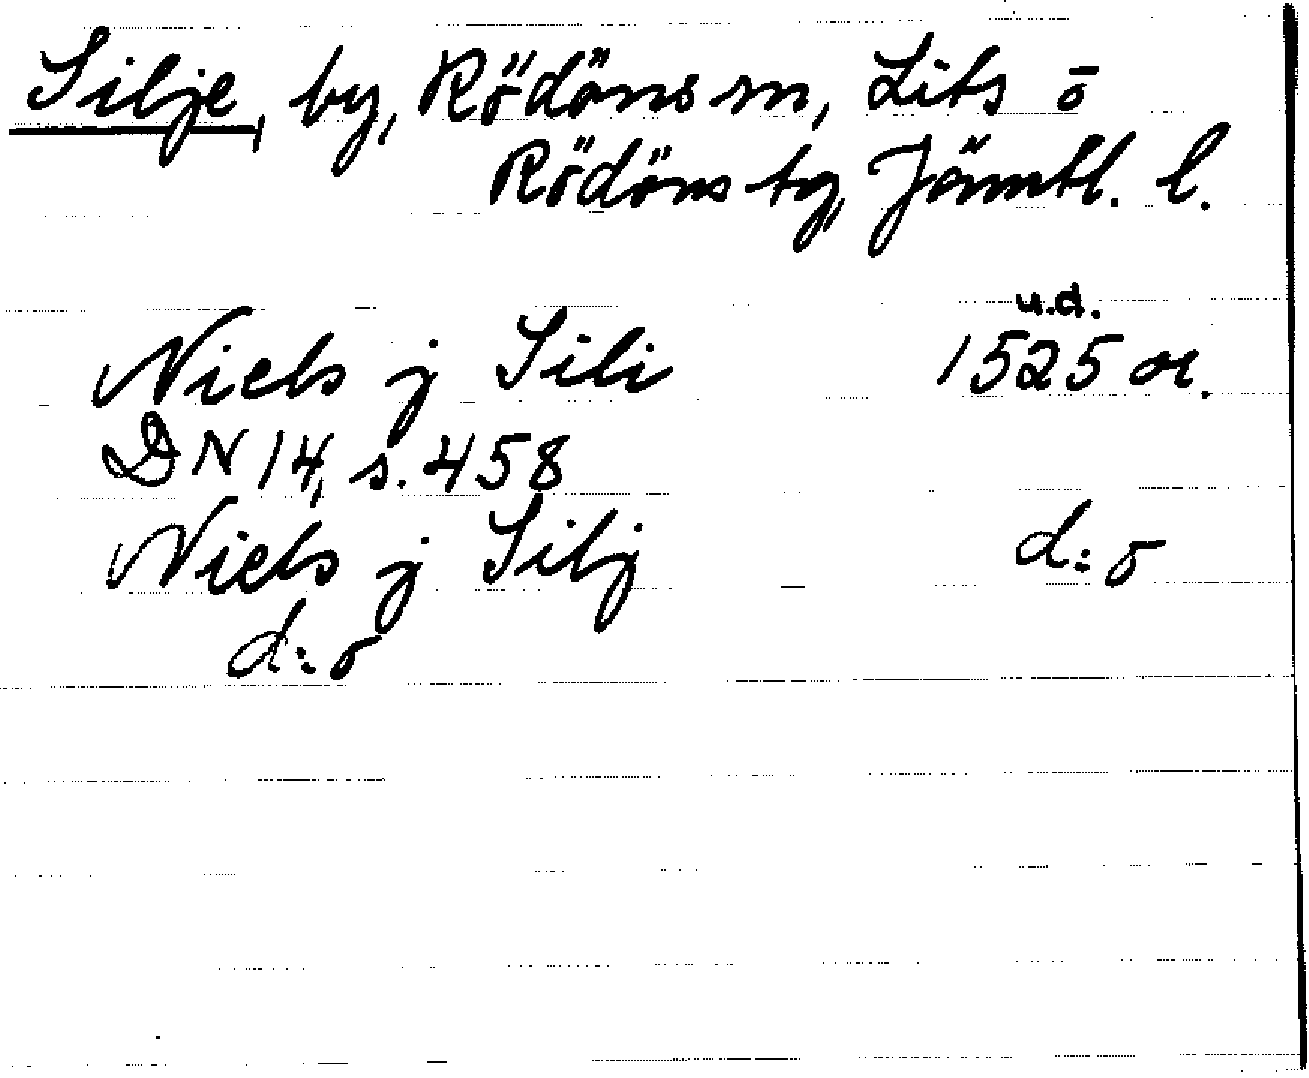 Silje, by, Rödöns sn, Lits ō
Rödöns tg, Jämtl. l.
u.d.
Niels j Sili 1525 or.
DN 14, s. 458
Niels j Silj d:o
d:o